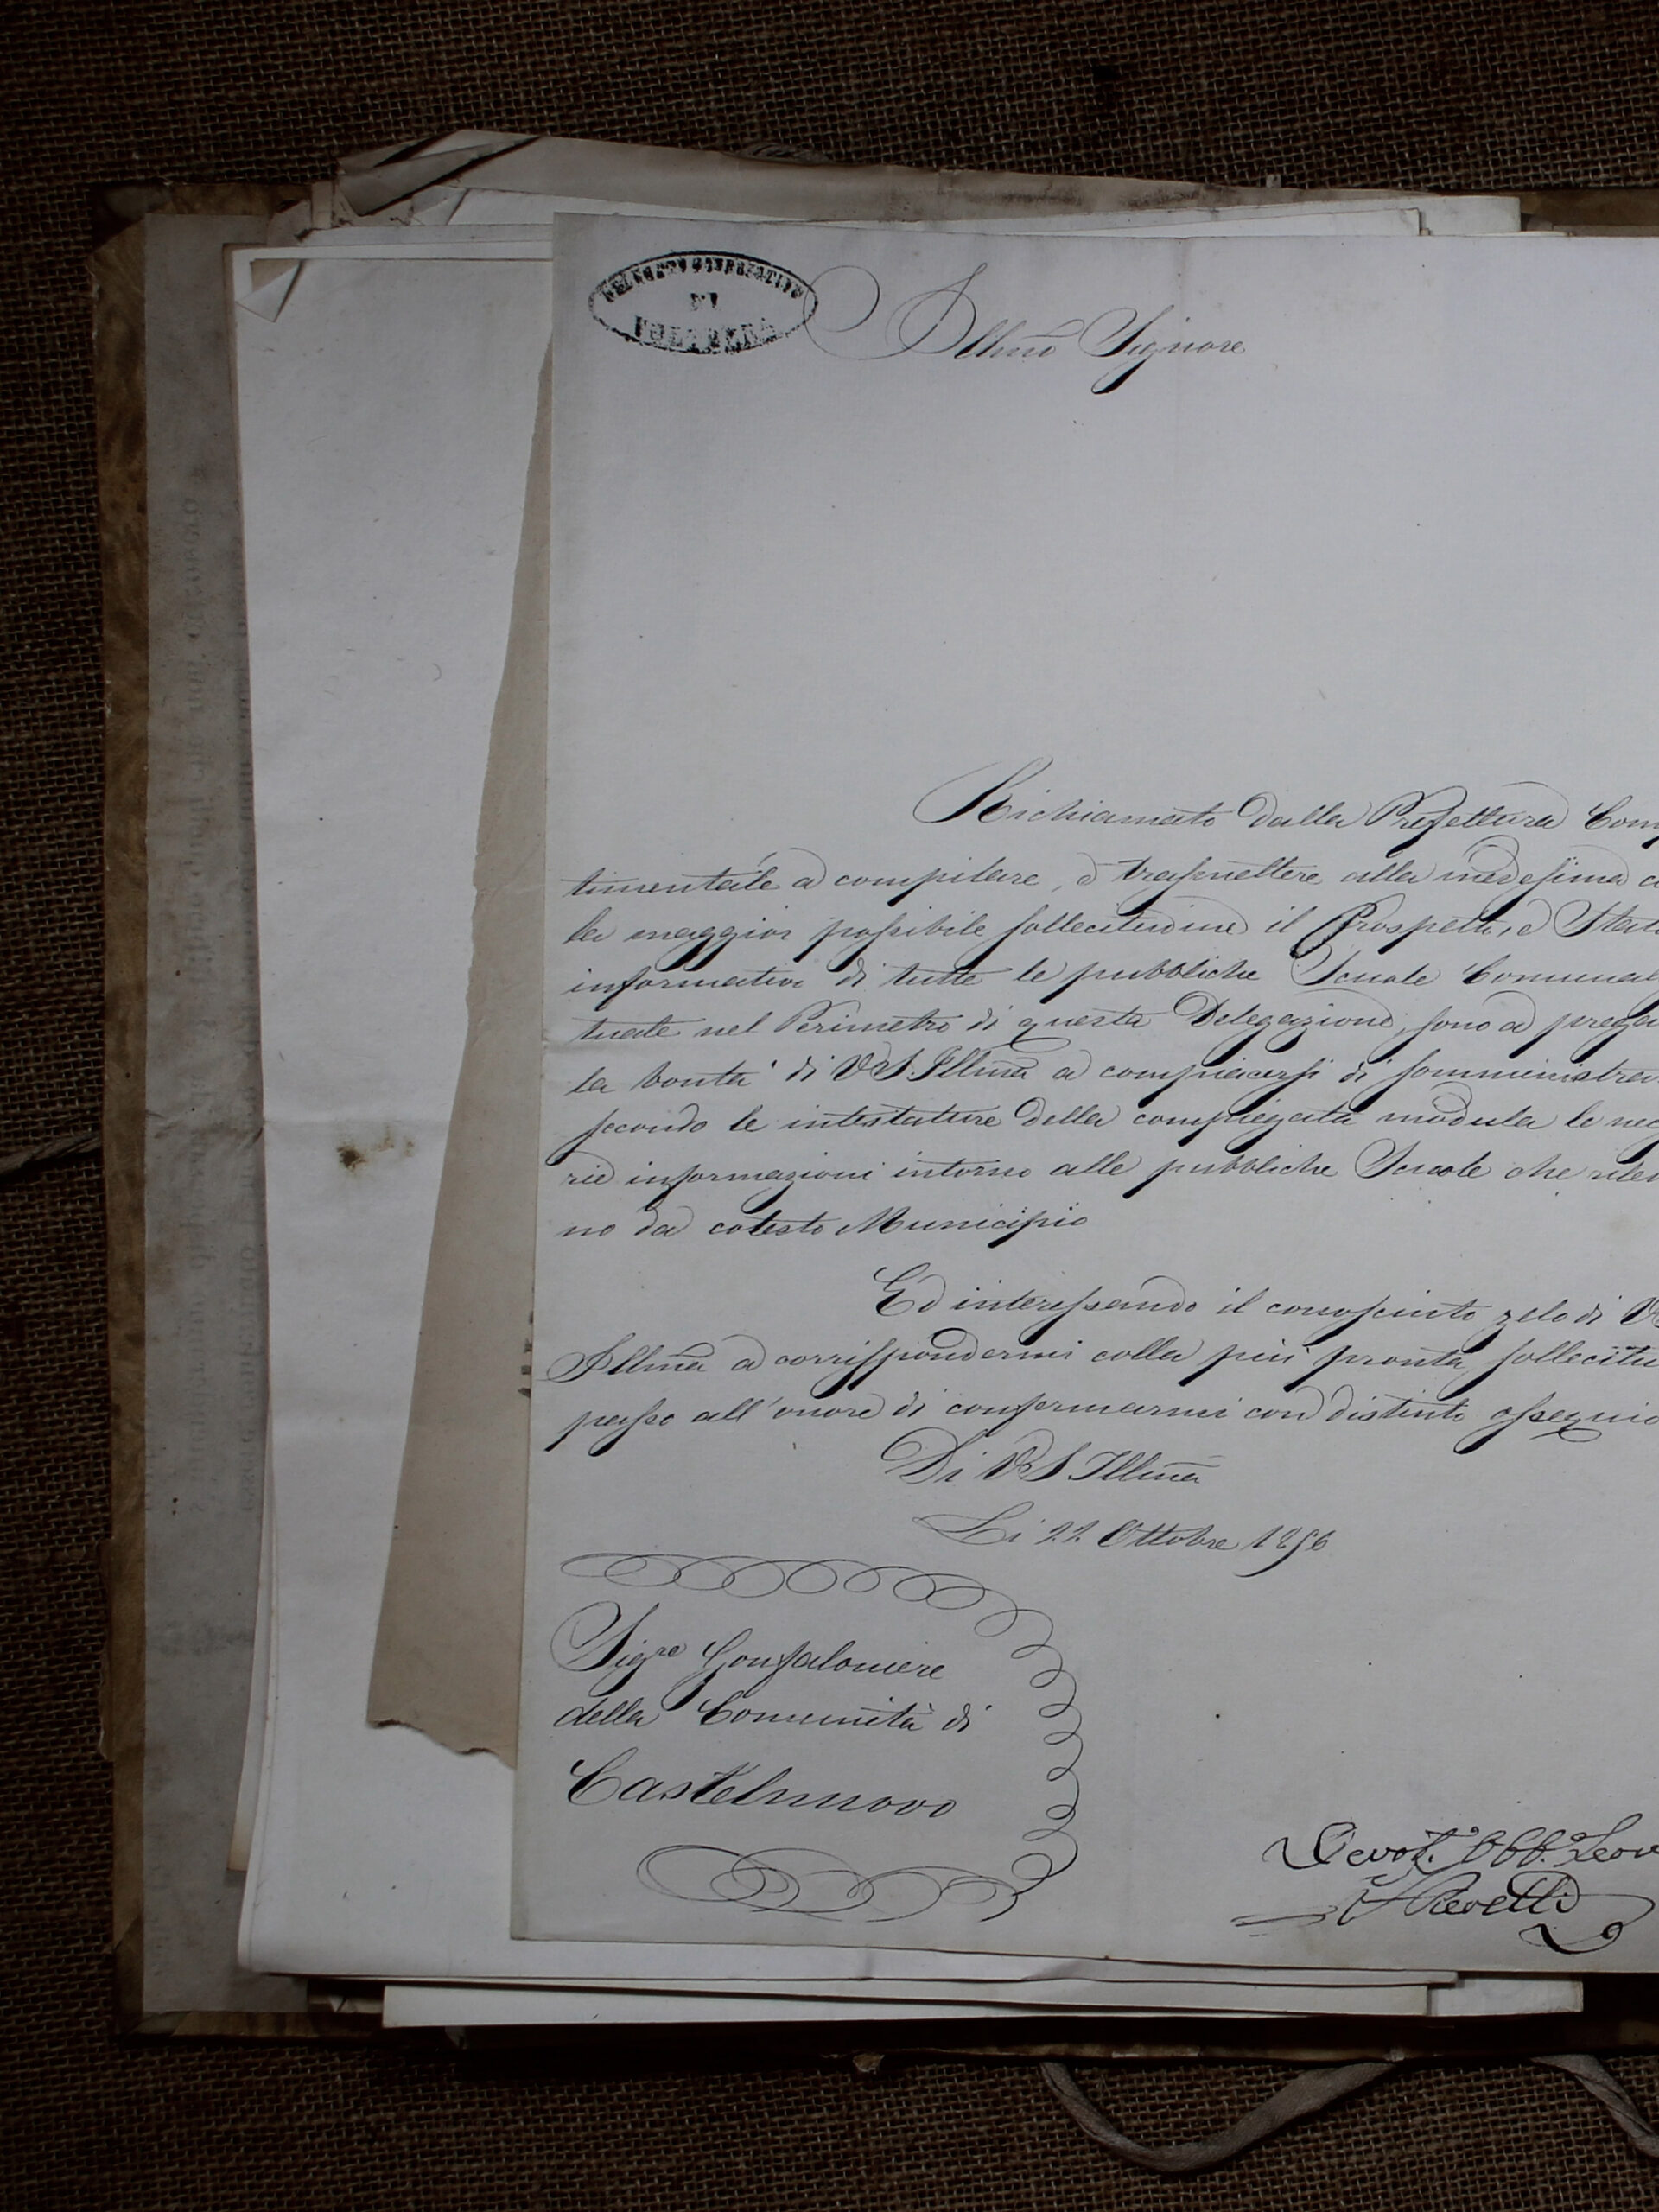 DI
Illmo Signore
Richiamato dalla Prefettura Com
timentale a compilare, e trasmettere alla medesima
la maggior possibile sollecitudine il Prospetto, e Stat
informativo di tutte le pubbliche Scuole Comunal
tuate nel Perimetro di questa Delegazione, sono a prega
la bontà di VS. Illma a compiacersi di somministra
secondo le intestature della compiegata modula le nec
rie informazioni intorno alle pubbliche Scuole che
no da cotesto Municipio
Ed interessando il conosciuto zelo di V
Illma a corrispondermi colla più pronta sollecitu
passo all'onore di confermarmi con distinto ossequio
Di VS Illma
Li 22 Ottobre 1856
Sigre Gonfaloniere
della Comunità di
Castelnuovo
Devot. Obb.